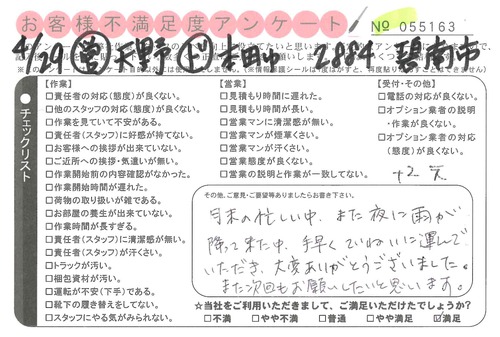 お客様不満足度アンケート
№ 055163
4/29 営 天野 ド 本田ゆ 2884 碧南市
チェックリスト
【作業】
□責任者の対応(態度)が良くない。
□他のスタッフの対応(態度)が良くない。
□作業を見ていて不安がある。
□責任者(スタッフ)に好感が持てない。
□お客様への挨拶が出来ていない。
□ご近所への挨拶・気遣いが無い。
□作業開始前の内容確認がなかった。
□作業開始時間が遅れた。
□荷物の取り扱いが雑である。
□お部屋の養生が出来ていない。
□作業時間が長すぎる。
□責任者(スタッフ)に清潔感が無い。
□責任者(スタッフ)が汗くさい。
□トラックが汚い。
□梱包資材が汚い。
□運転が不安(下手)である。
□靴下の履き替えをしてない。
□スタッフにやる気がみられない。
【営業】
□見積もり時間に遅れた。
□見積もり時間が長い。
□営業マンに清潔感が無い。
□営業マンが煙草くさい。
□営業マンが汗くさい。
□営業態度が良くない。
□営業の説明と作業が一致してない。
【受付・その他】
□電話の対応が良くない。
□オプション業者の説明・作業が良くない。
□オプション業者の対応(態度)が良くない。
その他、ご意見・ご要望等ありましたらお書き下さい。
月末の忙しい中、また夜に雨が
降って来た中、手早くていねいに運んで
いただき、大変ありがとうございました。
また次回もお願いしたいと思います。
☆当社をご利用いただきまして、ご満足いただけたでしょうか?
□不満 □やや不満 □普通 □やや満足 ☑満足